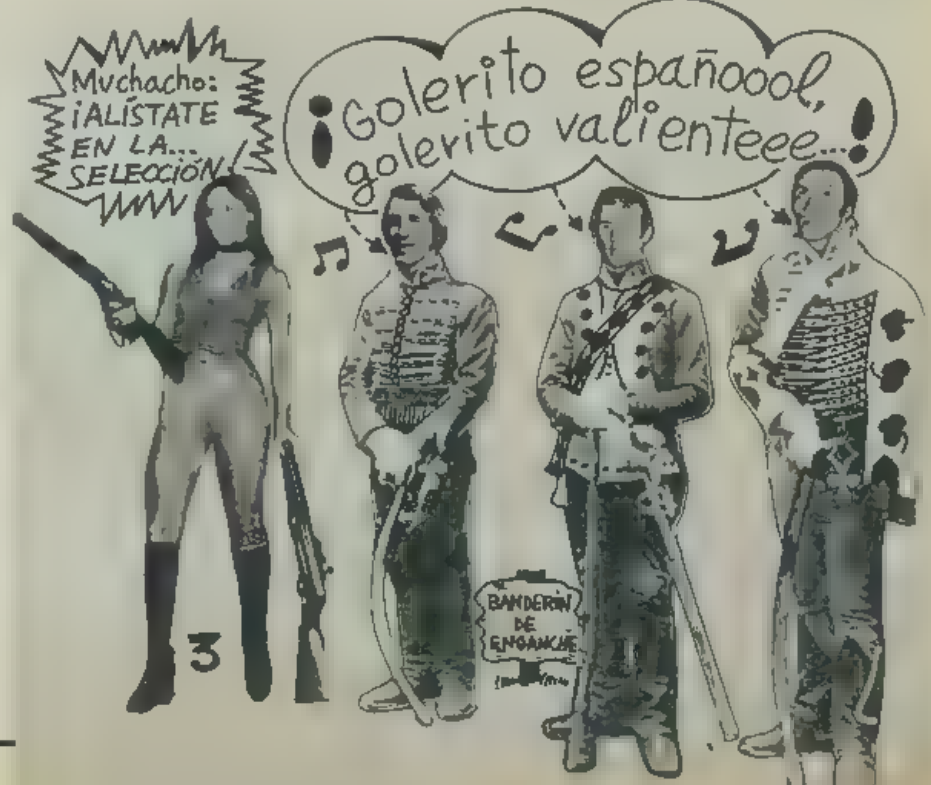 Muchacho:
¡ALÍSTATE
EN LA...
SELECCIÓN!
¡Golerito españoool,
golerito valienteee...!
3
BANDERÍN
DE
ENGANCHE